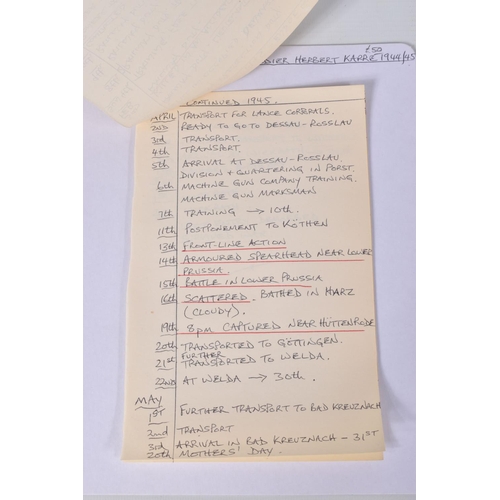 £50
HERBERT KARRE 1944/45
CONTINUED 1945.
APRIL TRANSPORT FOR LANCE CORPORALS.
2ND READY TO GO TO DESSAU-ROSSLAU
3rd TRANSPORT.
4th TRANSPORT.
5th ARRIVAL AT DESSAU-ROSSLAU.
DIVISION & QUARTERING IN PORST.
6th MACHINE GUN COMPANY TRAINING.
MACHINE GUN MARKSMAN
7th TRAINING → 10th.
11th POSTPONEMENT TO KÖTHEN
13th FRONT-LINE ACTION
14th ARMOURED SPEARHEAD NEAR LOWER
PRUSSIA.
15th BATTLE IN LOWER PRUSSIA
16th SCATTERED. BATHED IN HARZ
(CLOUDY).
19th 8pm CAPTURED NEAR HÜTTENRODE
20th TRANSPORTED TO GÖTTINGEN.
FURTHER
21st TRANSPORTED TO WELDA.
22ND AT WELDA → 30th.
MAY
1ST FURTHER TRANSPORT TO BAD KREUZNACH
2nd TRANSPORT
3rd ARRIVAL IN BAD KREUZNACH - 31ST
20th MOTHERS' DAY.